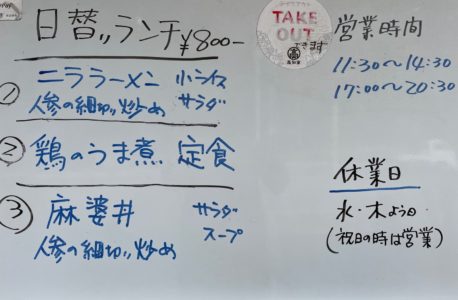 日替りランチ ¥800-
① ニララーメン 小ライス
人参の細切り炒め サラダ
② 鶏のうま煮 定食
③ 麻婆丼 サラダ
スープ
人参の細切り炒め
テイクアウト
TAKE
OUT
できます
営業時間
11:30〜14:30
17:00〜20:30
休業日
水・木よう日
(祝日の時は営業)